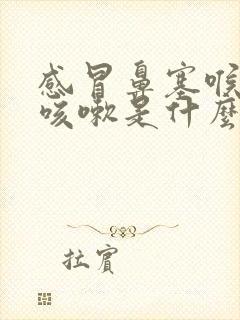 感冒鼻塞喉
咳嗽是什麼
拉賓